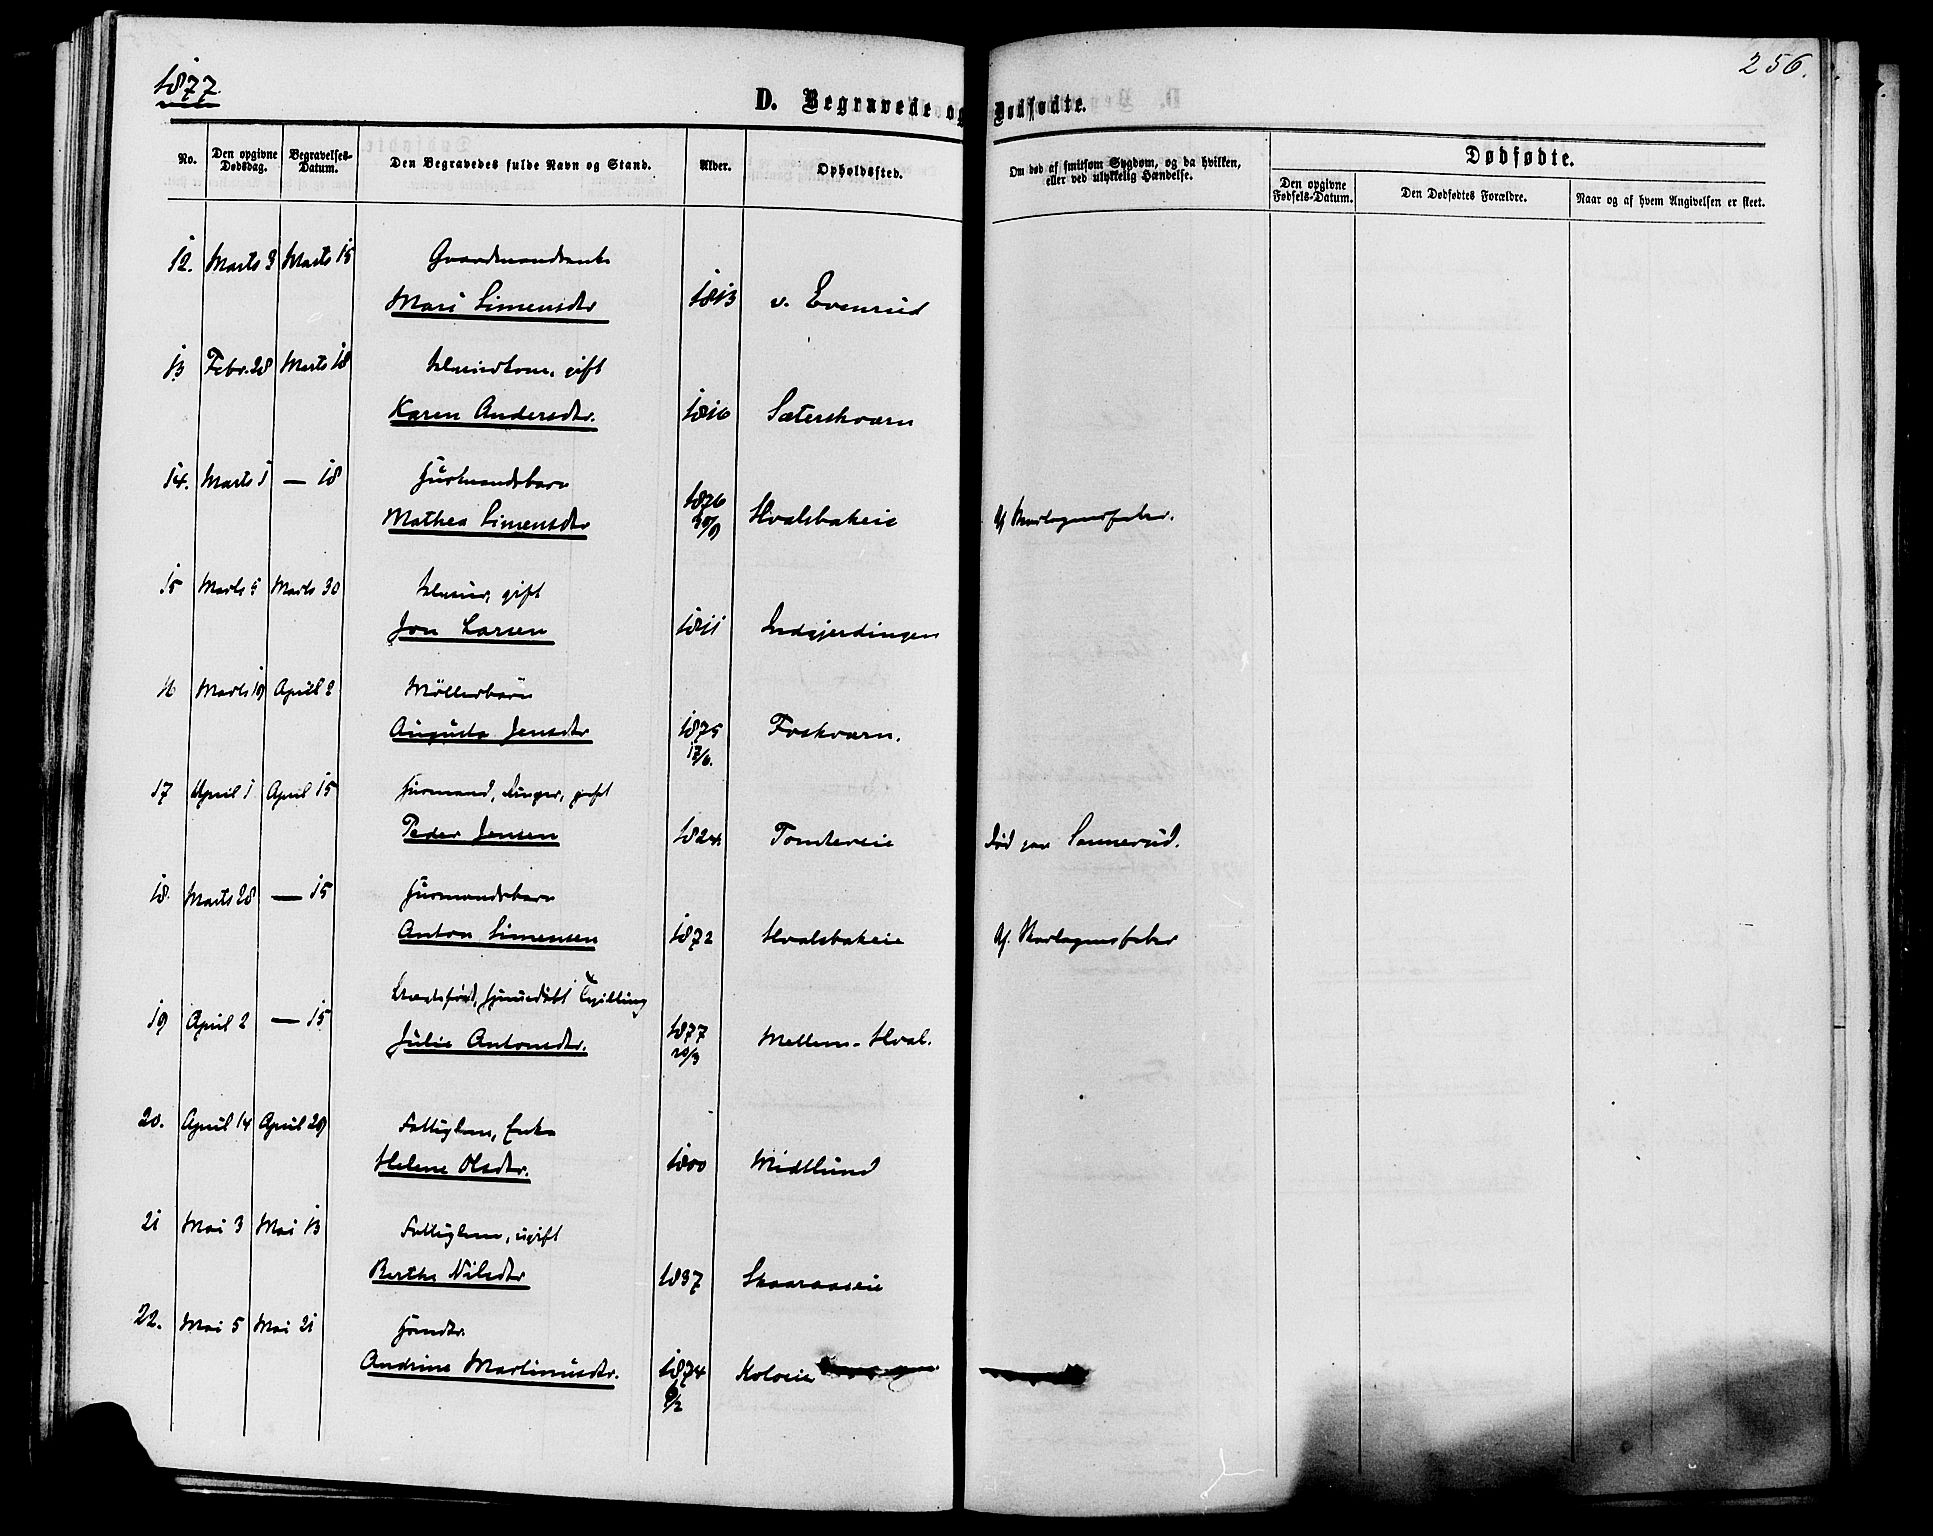 1877.
256.
D. Begravede og Dødfødte.
No.
Den opgivne Dødsdag.
Begravelses-Datum.
Den Begravedes fulde Navn og Stand.
Alder.
Opholdssted.
Om død af smitsom Sygdom, og da hvilken, eller ved ulykkelig Hændelse.
Dødfødte.
Den opgivne Fødsels-Datum.
Den Dødfødtes Forældre.
Naar og af hvem Angivelsen er skeet.
12. Marts 3 Marts 15 Gaardmandsenke
Mari Simensdtr 1813 v. Evenrud
13 Febr. 28 Marts 18 gift
Karen Andersdtr. 1816 Sæterskværn
14. Marts 1 — 18 Husmandsbarn
Mathea Simensdtr 1876 30/9 Hvalsbakeie Af Skarlagensfeber.
15 Marts 5 Marts 30 gift
Jon Larsen 1811 Indgjerdingen
16 Marts 19 April 2 Møllerbarn
Augusta Jensdtr 1875 17/6. Foskværn.
17 April 1 April 15 Husmand, gift
Peder Jensen 1824. Tomtereie Død paa Sannerud.
18. Marts 28 — 15 Husmandsbarn
Anton Simensen 1872 Hvalsbakeie Af Skarlagensfeber
19 April 2 — 15 hjemmedøbt Tvilling
Julie Antonsdtr. 1877 20/3 Mellem-Hval.
20. April 14 April 29 Fattiglem, Enke
Helene Olsdtr. 1800 Midtlund
21 Mai 3 Mai 13 Fattiglem, ugift
Berthe Nilsdtr 1837 Skaaraaseie
22. Mai 5 Mai 21
Andrine Martinusdtr. 1874 6/2 Koloeie